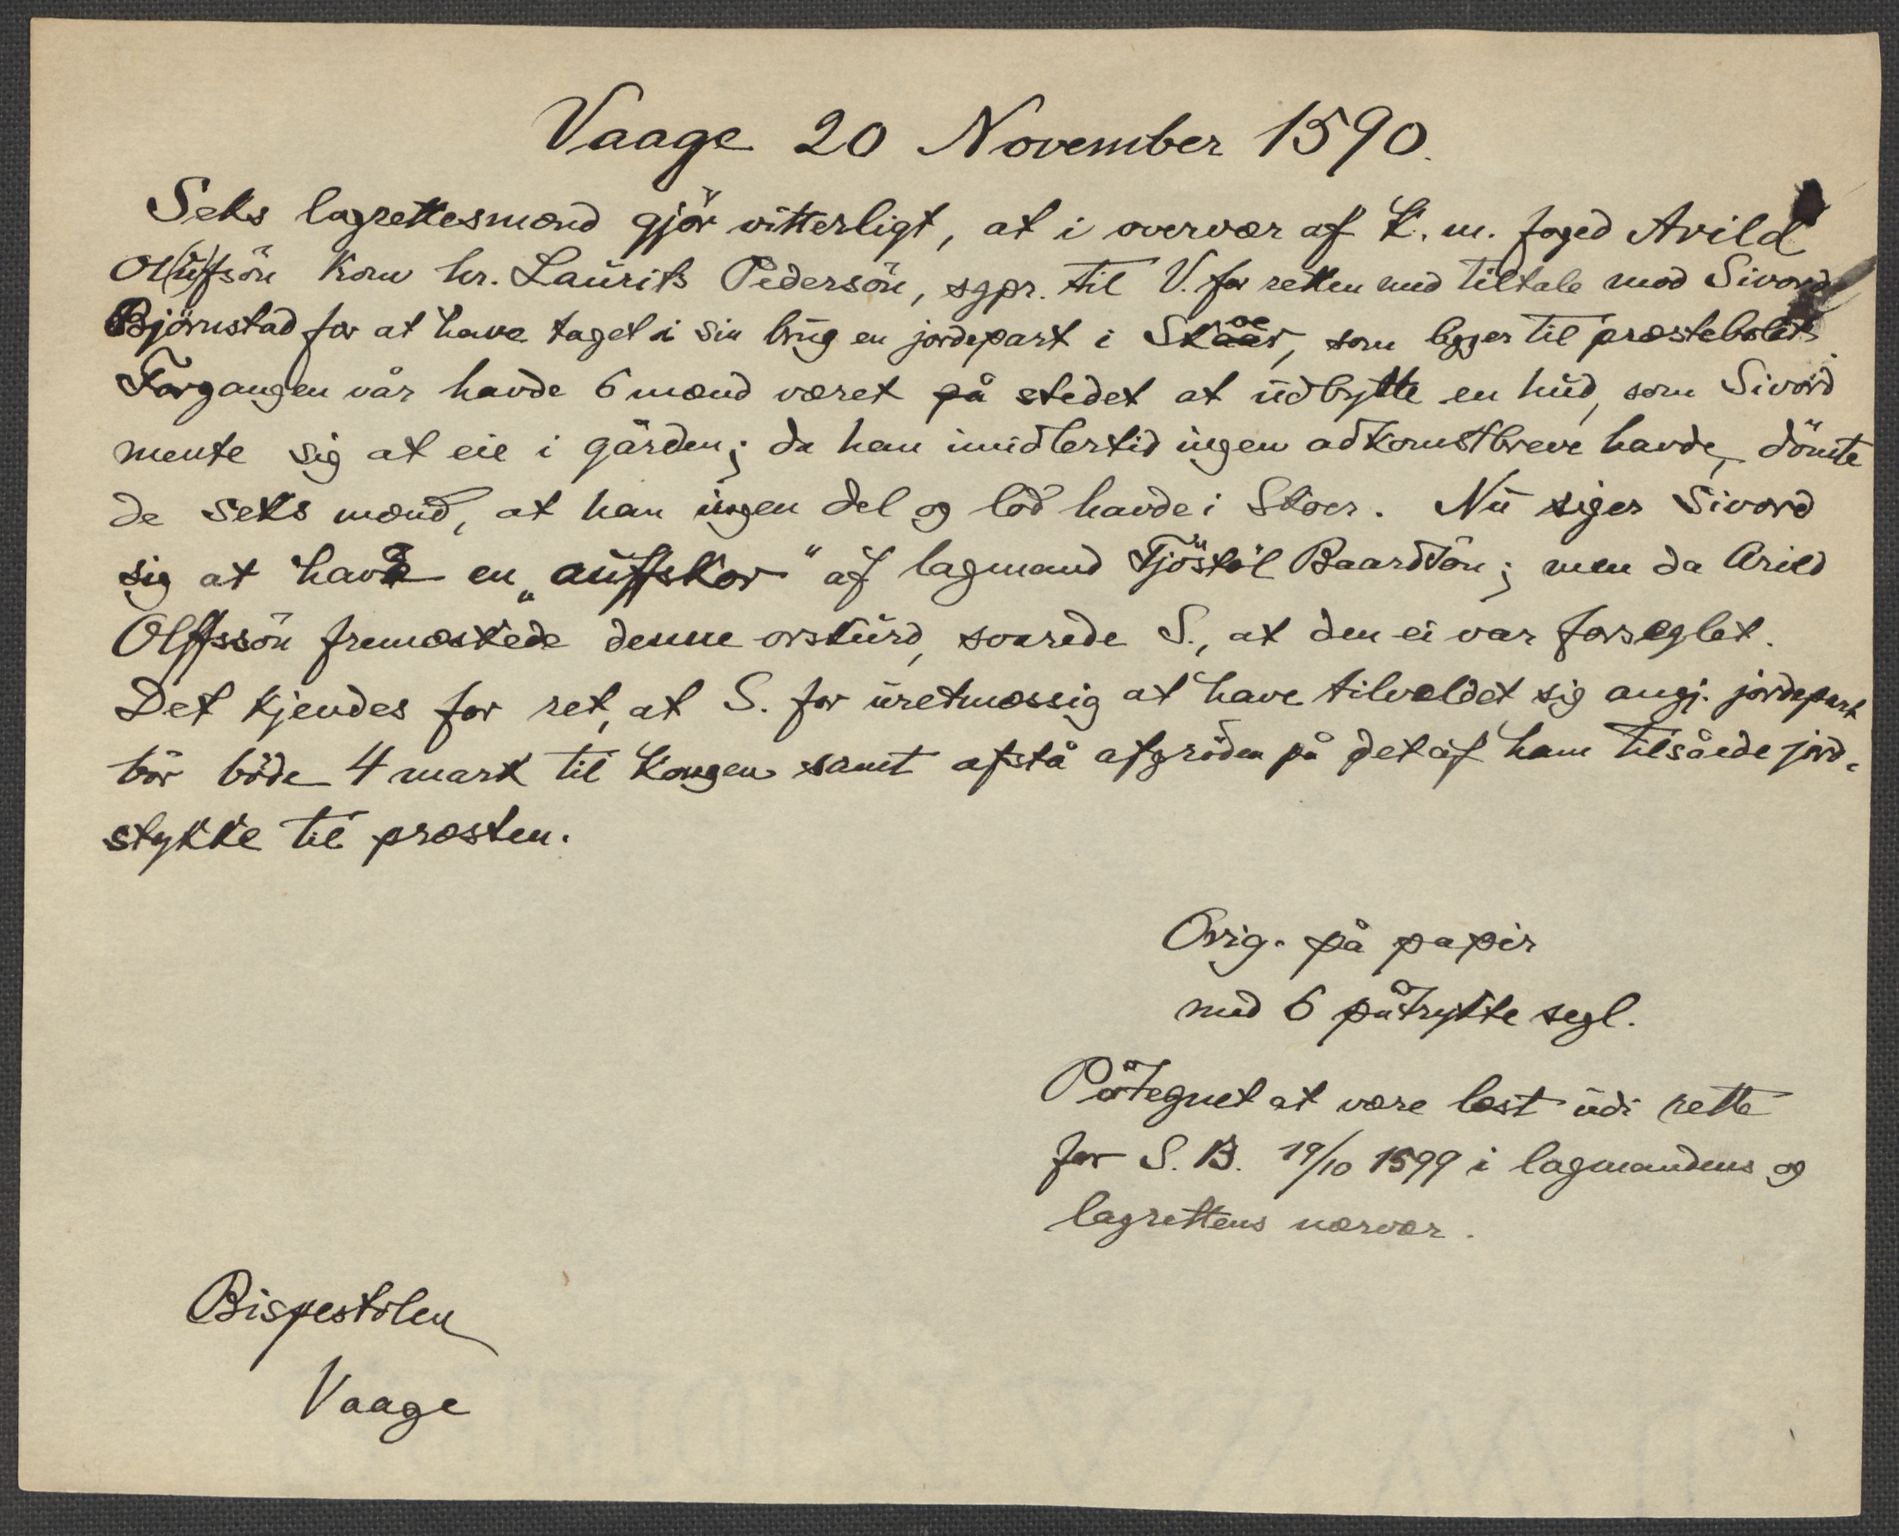 Vaage 20 November 1590.
Seks lagrettesmænd gjör vitterligt, at i overvær af K. m. foged Arild
Ol(u)fsön kom hr. Laurits Pedersön, sgpr. til V. for retten med tiltale mod Sivord
Björnstad for at have taget i sin brug en jordepart i Skær, som ligger til præstebolet.
Forgangen vår havde 6 mænd været på stedet at udbytte en hud, som Sivord
mente sig at eie i gården; da han imidlertid ingen adkomstbreve havde, dömte
de seks mænd, at han ingen del og lod havde i Skær. Nu siger Sivord
sig at have en „auffskor" af lagmand Tjöstöl Baardsön; men da Arild
Olffssön fremæskede denne orskurd, svarede S., at den ei var forseglet.
Det kjendes for ret, at S. for uretmæssig at have tilvældet sig angj. jordepart
bör böde 4 mark til Kongen samt afstå afgröden på det af ham tilsåede jord-
stykke til præsten.
Orig. på papir
med 6 påtrykte segl.
Påtegnet at være læst udi rette
for S. B. 19/10 1599 i lagmandens og
lagrettens nærvær.
Bispestolen
Vaage